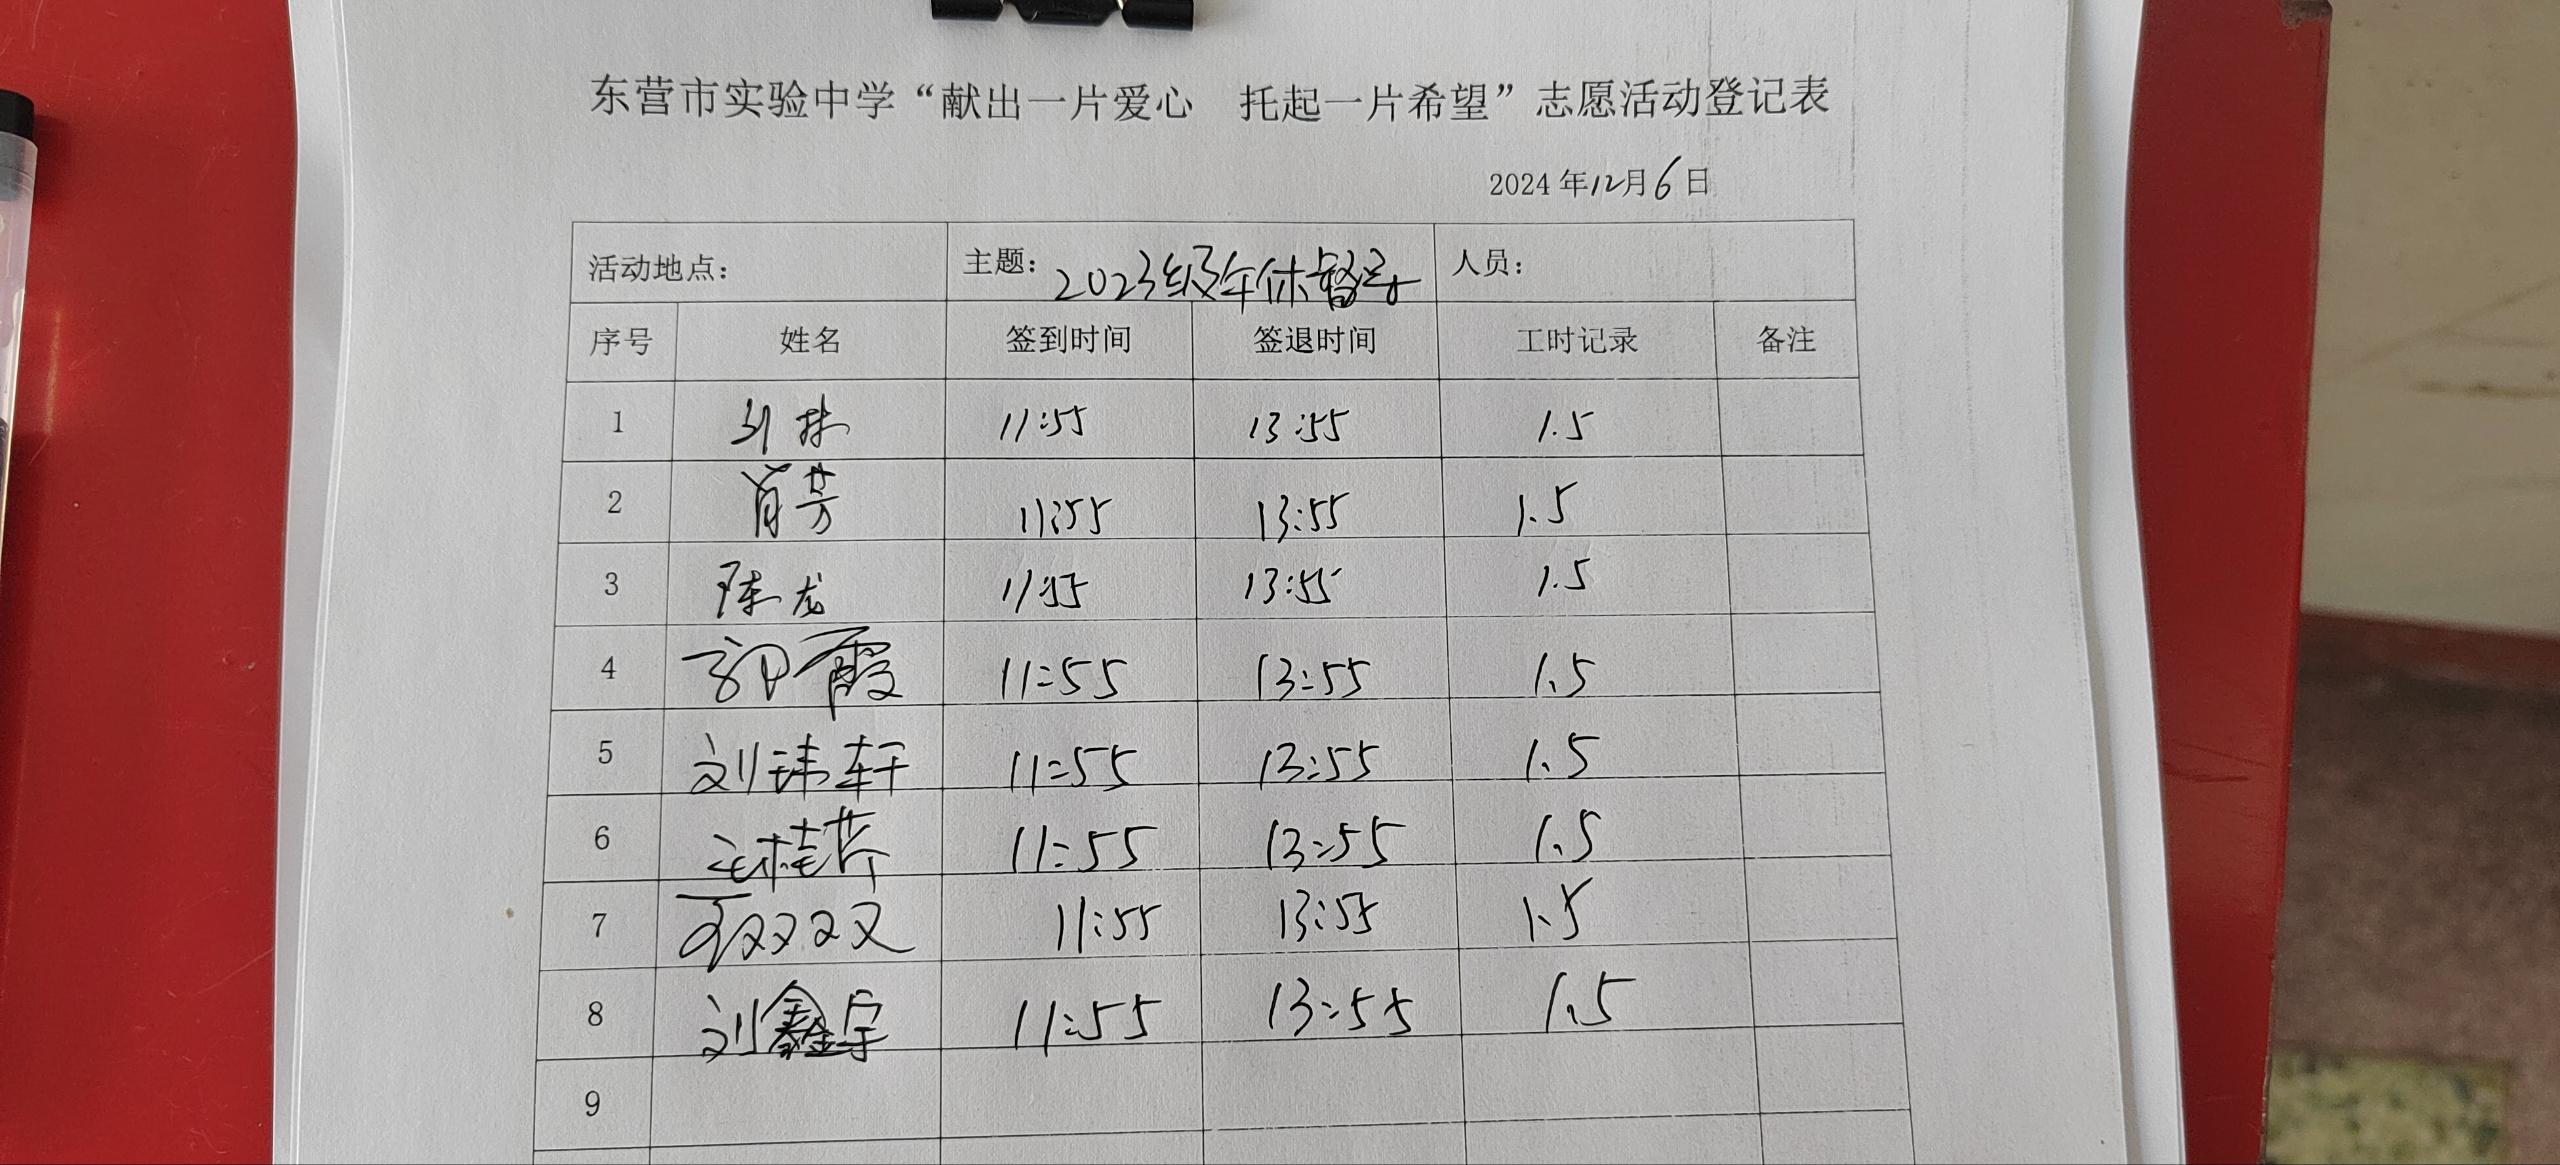 东营市实验中学“献出一片爱心 托起一片希望”志愿活动登记表
2024年12月6日
活动地点： 主题：2023级午休督导 人员：
序号 姓名 签到时间 签退时间 工时记录 备注
1 11:55 13:55 1.5
2 肖芳 11:55 13:55 1.5
3 陈龙 11:55 13:55 1.5
4 郭霞 11:55 13:55 1.5
5 刘玮轩 11:55 13:55 1.5
6 11:55 13:55 1.5
7 11:55 13:55 1.5
8 刘鑫宇 11:55 13:55 1.5
9